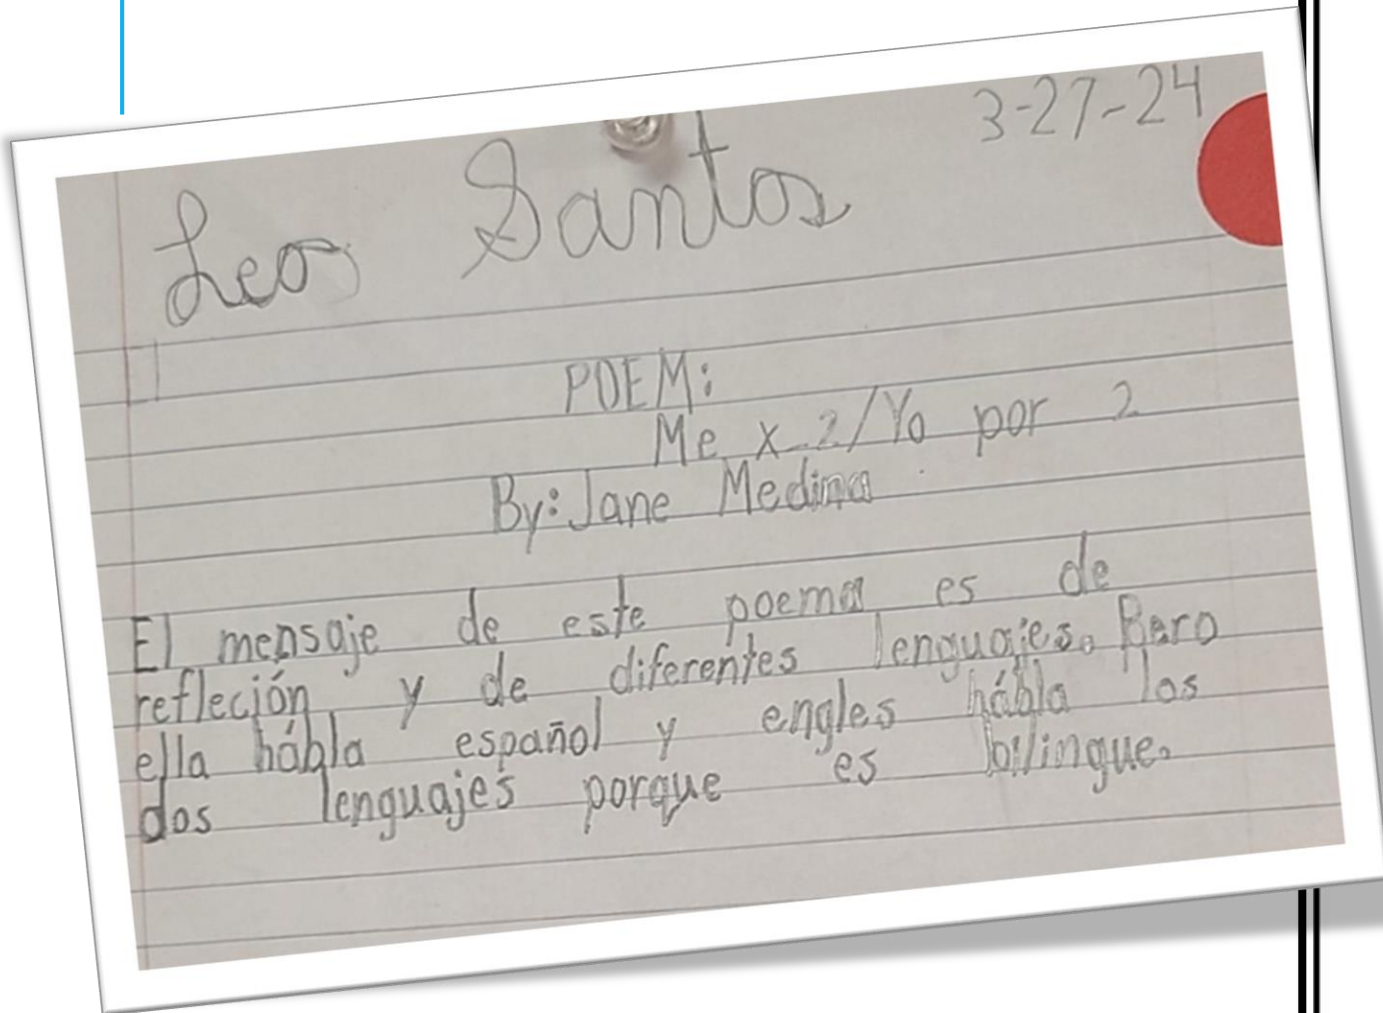 3-27-24
Leo Santos
POEM:
Me x 2/Yo por 2
By: Jane Medina
El mensaje de este poema es de
refleción y de diferentes lenguajes. Pero
ella hábla español y engles hábla los
dos lenguajes porque es bilingue.